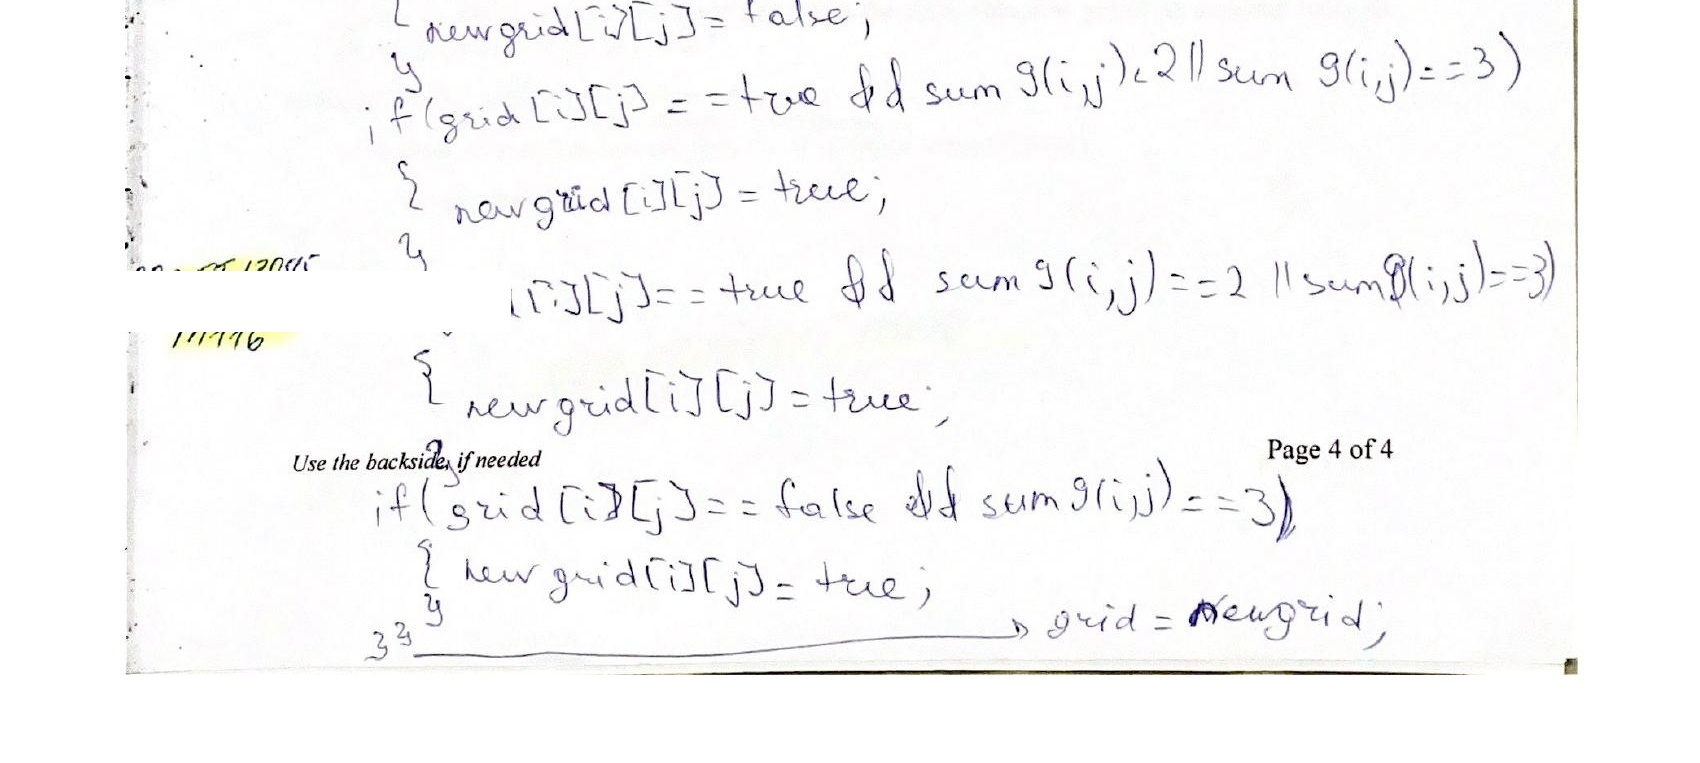 { newgrid[i][j] = false;
}
if(grid[i][j] == true && sum g(i,j) < 2 || sum g(i,j) == 3)
{ newgrid[i][j] = true;
}
[i][j] == true && sum g(i,j) == 2 || sum g(i,j) == 3)
{ newgrid[i][j] = true;
Use the backside, if needed
Page 4 of 4
}
if(grid[i][j] == false && sum g(i,j) == 3)
{ newgrid[i][j] = true;
}
}} grid = newgrid;